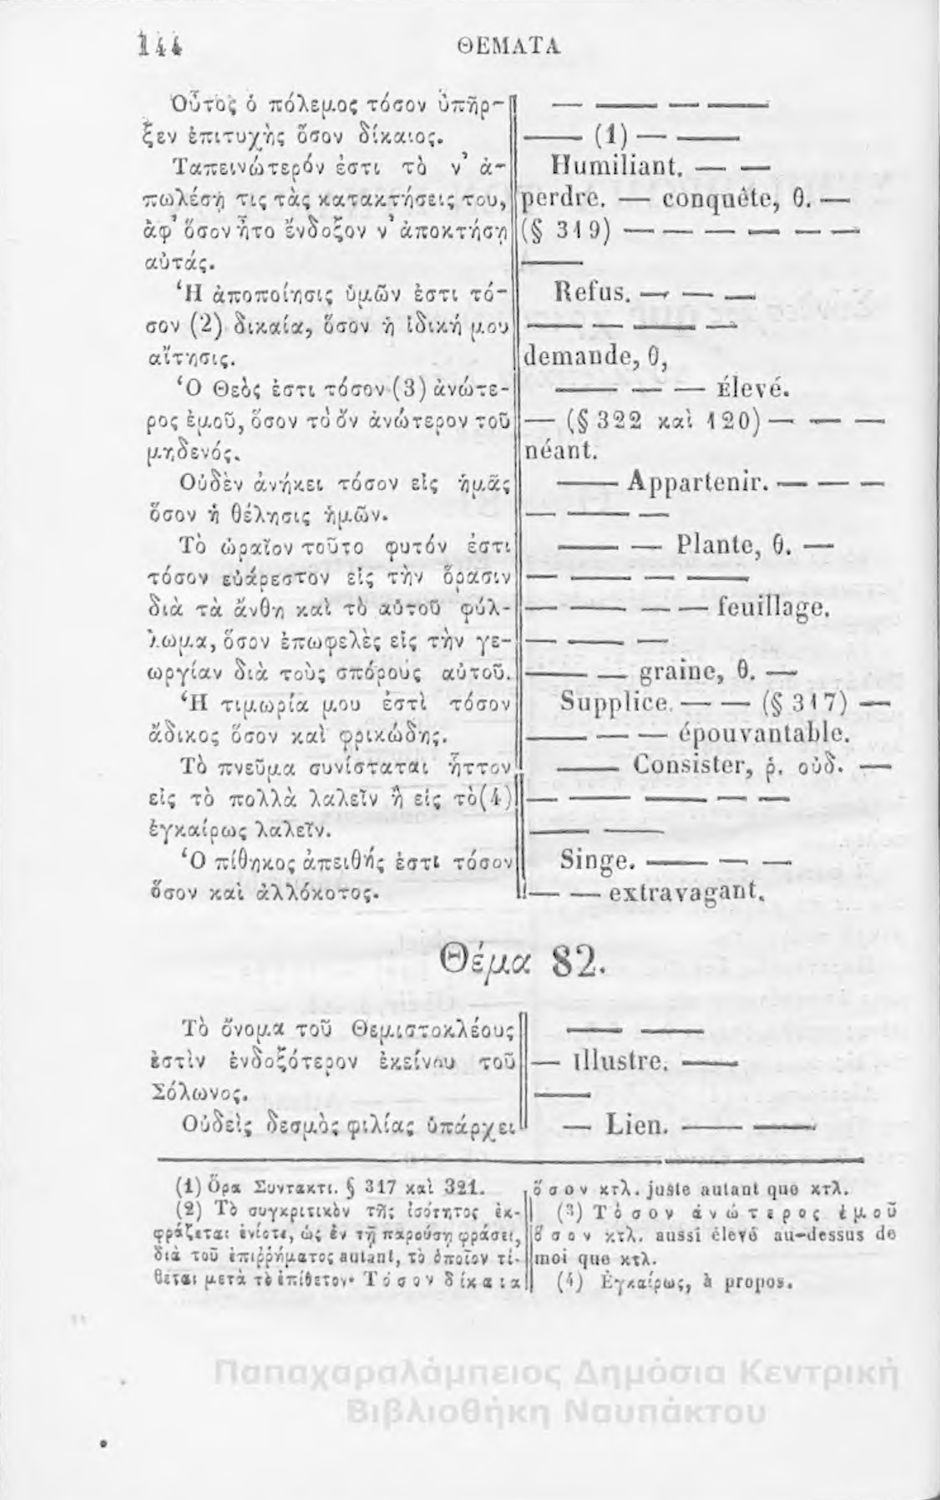 144 ΘΕΜΑΤΑ
Οὗτος ὁ πόλεμος τόσον ὑπῆρ- — —— — ——
ξεν ἐπιτυχὴς ὅσον δίκαιος. —— (1) — ——
Ταπεινώτερόν ἐστι τὸ ν’ ἀ- Humiliant. — —
πωλέσῃ τις τὰς κατακτήσεις του, perdre. — conquête, θ. —
ἀφ’ ὅσον ἦτο ἔνδοξον ν’ ἀποκτήσῃ (§ 319) — — — — — —
αὐτάς. ——
Ἡ ἀποποίησις ὑμῶν ἐστι τό- Refus. — — —
σον (2) δικαία, ὅσον ἡ ἰδική μου —— — —— —
αἴτησις. demande, θ,
Ὁ Θεός ἐστι τόσον (3) ἀνώτε- —— — — Élevé.
ρος ἐμοῦ, ὅσον τὸ ὂν ἀνώτερον τοῦ — (§ 322 καὶ 120) — — —
μηδενός. néant.
Οὐδὲν ἀνήκει τόσον εἰς ἡμᾶς —— Appartenir. — — —
ὅσον ἡ θέλησις ἡμῶν. — —— —
Τὸ ὡραῖον τοῦτο φυτόν ἐστι —— — Plante, θ. —
τόσον εὐάρεστον εἰς τὴν ὅρασιν — —— — ——
διὰ τὰ ἄνθη καὶ τὸ αὐτοῦ φύλ- — —— — — feuillage.
λωμα, ὅσον ἐπωφελὲς εἰς τὴν γε- — —— —
ωργίαν διὰ τοὺς σπόρους αὐτοῦ. —— — graine, θ. —
Ἡ τιμωρία μου ἐστὶ τόσον Supplice. — — (§ 317) —
ἄδικος ὅσον καὶ φρικώδης. —— — — épouvantable.
Τὸ πνεῦμα συνίσταται ἧττον —— Consister, ῥ. οὐδ. —
εἰς τὸ πολλὰ λαλεῖν ἢ εἰς τὸ (4) — —— —— — —
ἐγκαίρως λαλεῖν. —— ——
Ὁ πίθηκος ἀπειθής ἐστι τόσον Singe. —— — —
ὅσον καὶ ἀλλόκοτος. — — extravagant.
Θέμα 82.
Τὸ ὄνομα τοῦ Θεμιστοκλέους —— ——
ἐστὶν ἐνδοξότερον ἐκείνου τοῦ — illustre. ——
Σόλωνος. ——
Οὐδεὶς δεσμὸς φιλίας ὑπάρχει — Lien. —— ——
(1) Ὅρα Συντακτ. § 317 καὶ 321.
(2) Τὸ συγκριτικὸν τῆς ἰσότητος ἐκ-
φράζεται ἐνίοτε, ὡς ἐν τῇ παρούσῃ φράσει,
διὰ τοῦ ἐπιρρήματος autant, τὸ ὁποῖον τί-
θεται μετὰ τὸ ἐπίθετον· Τόσον δίκαια
ὅσον κτλ. juste autant que κτλ.
(3) Τόσον ἀνώτερος ἐμοῦ
ὅσον κτλ. aussi élevé au-dessus de
moi que κτλ.
(4) Ἐγκαίρως, à propos.
Παπαχαραλάμπειος Δημόσια Κεντρική
Βιβλιοθήκη Ναυπάκτου